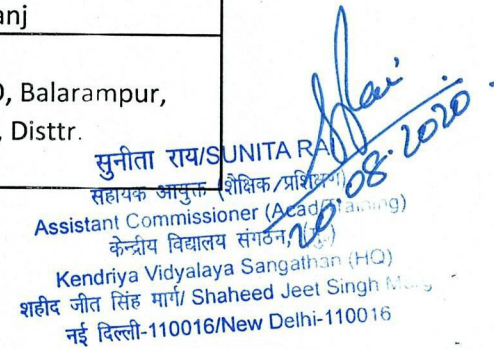 anj
, Balarampur,
, Disttr.
सुनीता राय/SUNITA RAI
सहायक आयुक्त (शैक्षिक/प्रशिक्षण)
Assistant Commissioner (Acad/Training)
केन्द्रीय विद्यालय संगठन, (मु.)
Kendriya Vidyalaya Sangathan (HQ)
शहीद जीत सिंह मार्ग/ Shaheed Jeet Singh Marg
नई दिल्ली-110016/New Delhi-110016
20.08.2020